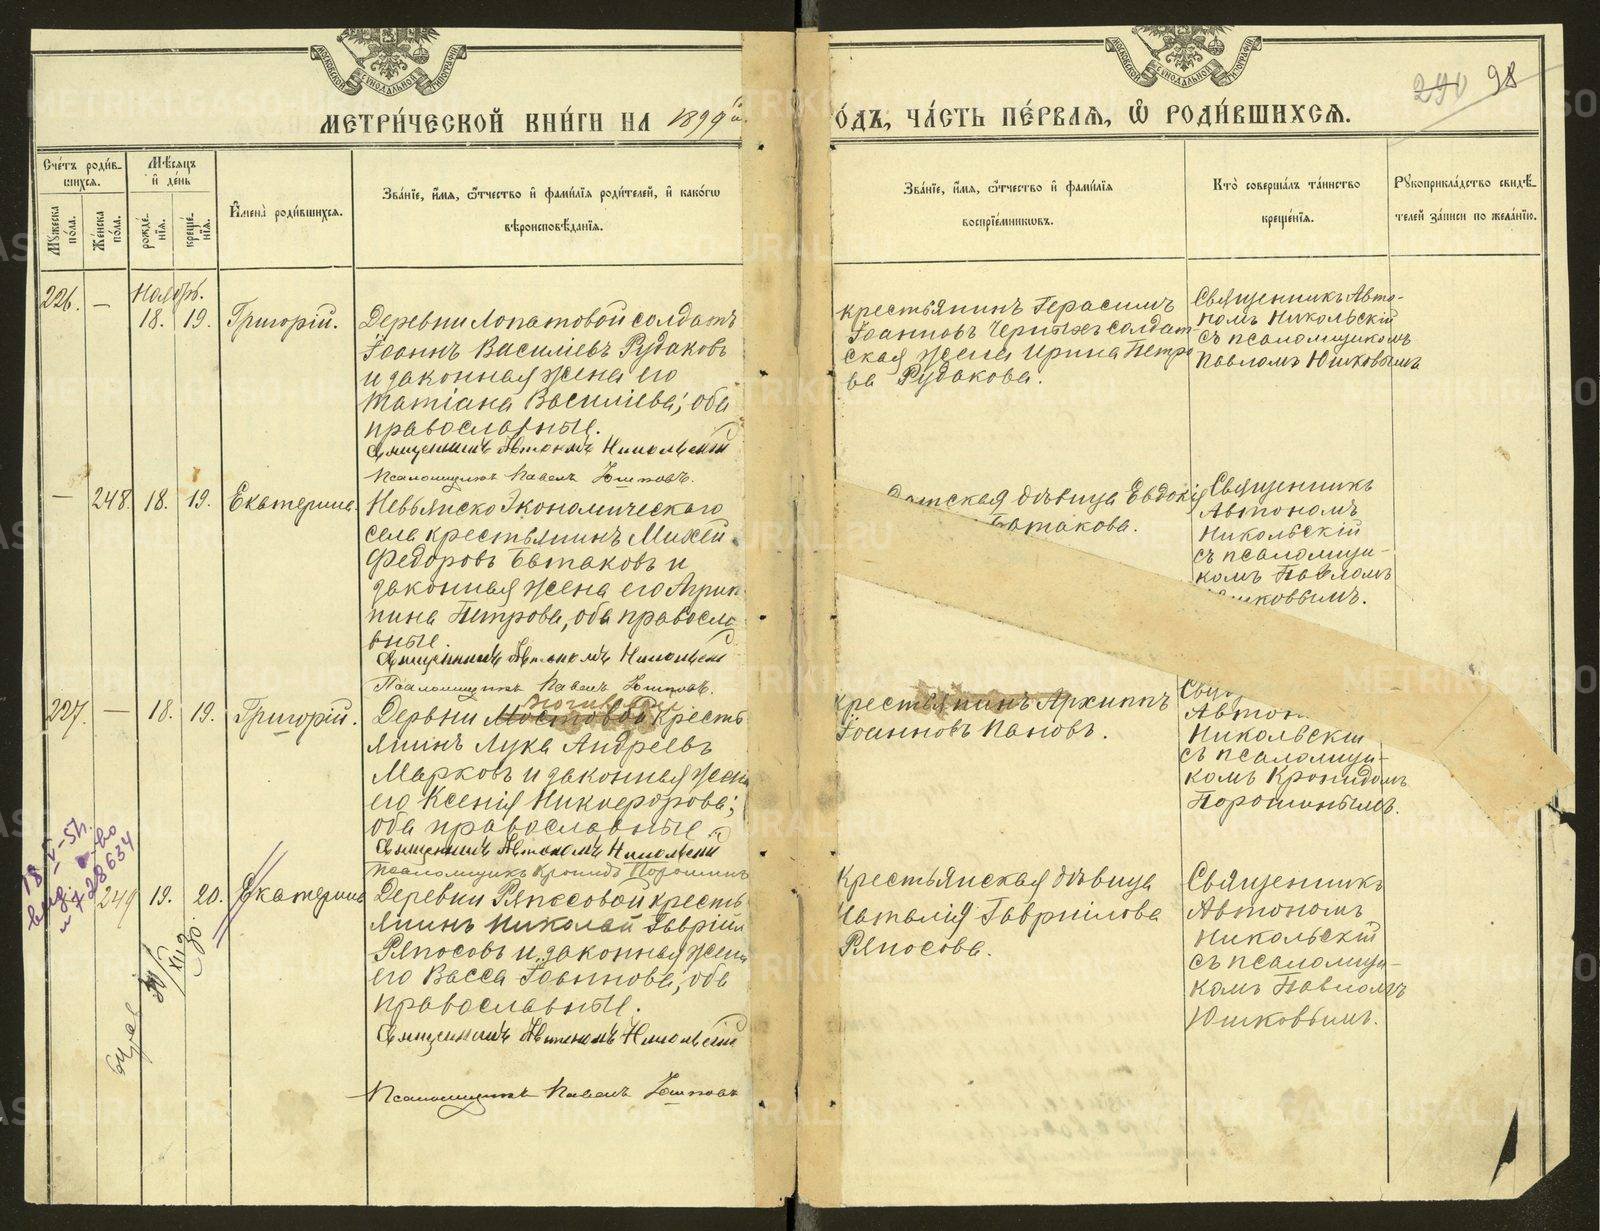 МОСКОВСКОЙ СѴНОДАЛЬНОЙ ТИПОГРАФІИ
МОСКОВСКОЙ СѴНОДАЛЬНОЙ ТИПОГРАФІИ
290 98
МЕТРИ́ЧЕСКОЙ КНИ́ГИ НА 1899й
ГО́ДЪ, ЧА́СТЬ ПЕ́РВАѦ, Ѡ҆ РОДИ́ВШИХСѦ.
Сче́тъ роди́в-
шихсѧ.
Мꙋжеска
по́ла.
Же́нска
по́ла.
Мѣ́сѧцъ
и҆ де́нь
рожде́-
нїѧ.
креще́-
нїѧ.
И҆мена̀ роди́вшихсѧ.
Зва́нїе, и҆́мѧ, ѻ҆́тчество и҆ фами́лїѧ роди́телей, и҆ како́гѡ
вѣроисповѣ́данїѧ.
Зва́нїе, и҆́мѧ, ѻ҆́тчество и҆ фами́лїѧ
воспрїе́мникѡвъ.
Кто̀ соверша́лъ та́инство
креще́нїѧ.
Рꙋкоприкла́дство свидѣ́-
телей за́писи по жела́нїю.
226. — Ноябрь.
18. 19. Григорій.
Деревни Лопатовой солдатъ
Іоаннъ Василіевъ Рудаковъ
и законная жена его
Татіана Василіева; оба
православные.
Священникъ Автономъ Никольскій
Псаломщикъ Павелъ Юшковъ.
крестьянинъ Герасимъ
Іоанновъ Черныхъ солдат-
ская жена Ирина Петро
ва Рудакова.
Священникъ Авто-
номъ Никольскій
съ псаломщикомъ
Павломъ Юшковымъ
— 248. 18. 19. Екатерина.
Невьянско Экономическаго
села крестьянинъ Михей
Федоровъ Батаковъ и
законная жена его Агрип
пина Петрова, оба правосла
вные.
Священникъ Автономъ Никольскій
Псаломщикъ Павелъ Юшковъ.
дѣвица Евдокія
Батакова.
Священникъ
Автономъ
Никольскій
съ псаломщи-
комъ Павломъ
Юшковымъ.
227. — 18. 19. Григорій.
Деревни Мостовой кресть
янинъ Лука Андреевъ
Марковъ и законная жена
его Ксенія Никифорова;
оба православные.
Священникъ Автономъ Никольскій
Псаломщикъ Кронидъ Порошинъ
крестьянинъ Архиппъ
Іоанновъ Пановъ.
Никольскій
съ псаломщи-
комъ Кронидомъ
Порошинымъ.
18-V-51г.
выд. с-во
№ 728634
249 19. 20. Екатерина
Деревни Ряпосовой кресть
янинъ Николай Гавріил
Ряпосовъ и законная жена
его Васса Іоаннова, оба
православные.
Священникъ Автономъ Никольскій
Псаломщикъ Павелъ Юшковъ
Крестьянская дѣвица
Наталія Гавриілова
Ряпосова.
Священникъ
Автономъ
Никольскій
съ псаломщи-
комъ Павломъ
Юшковымъ.